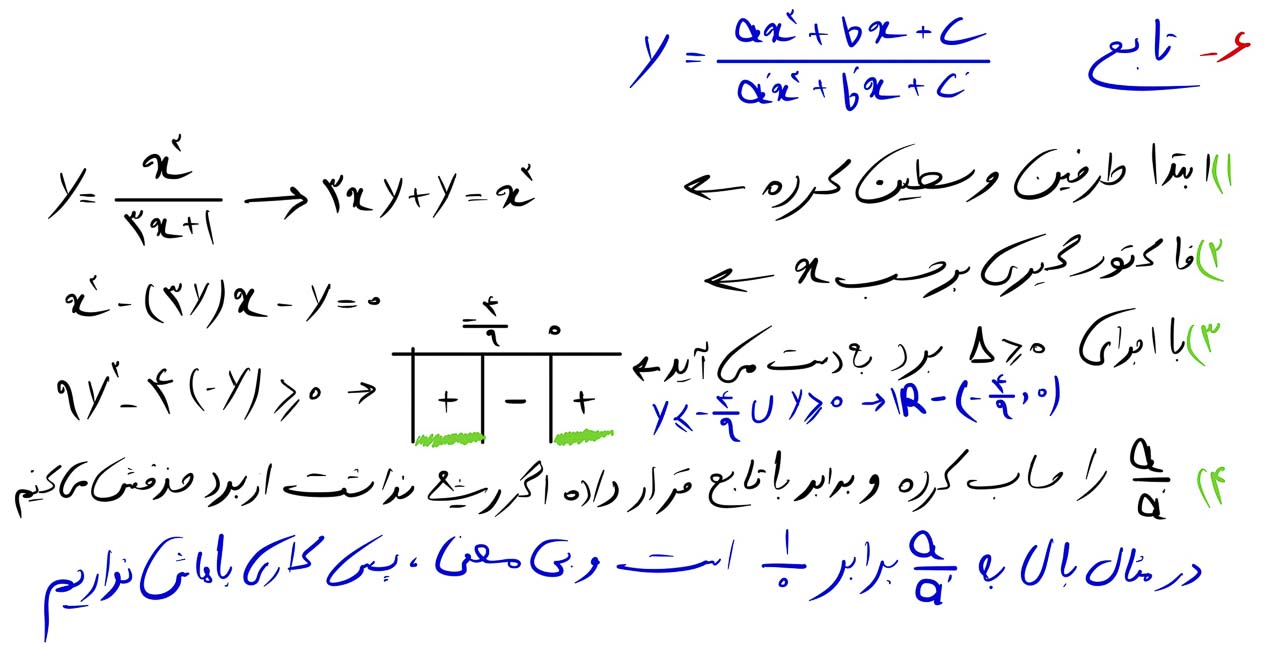 ۶- تابع y = (ax² + bx + c) / (a'x² + b'x + c')
۱) ابتدا طرفین وسطین کرده ←
y = x^۲ / (۳x+۱) → ۳xy + y = x^۲
۲) فاکتورگیری برحسب x ←
x^۲ - (۳y)x - y = ۰
۳) با اجرای Δ ≥ ۰ برد بدست می آید ←
۹y^۲ - ۴(-y) ≥ ۰ →
-۴/۹ ۰
+ - +
y ≤ -۴/۹ ∪ y ≥ ۰ → ℝ - (-۴/۹, ۰)
۴) a/a' را حساب کرده و برابر با تابع قرار داده اگر ریشه نداشت از برد حذفش می کنیم
در مثال بال به a/a' برابر ۱/۰ است و بی معنی، پس کاری باهاش نداریم